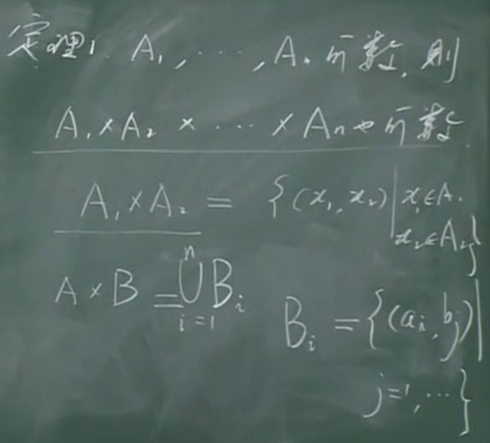 定理1. A₁, ⋯, Aₙ 可数, 则
A₁×A₂ × ⋯ × Aₙ也可数
A₁×A₂ = {(x₁, x₂) | x₁∈A₁
x₂∈A₂}
A×B = ⋃ⁿᵢ₌₁ Bᵢ
Bᵢ = {(aᵢ, bⱼ) |
j=1, ⋯}